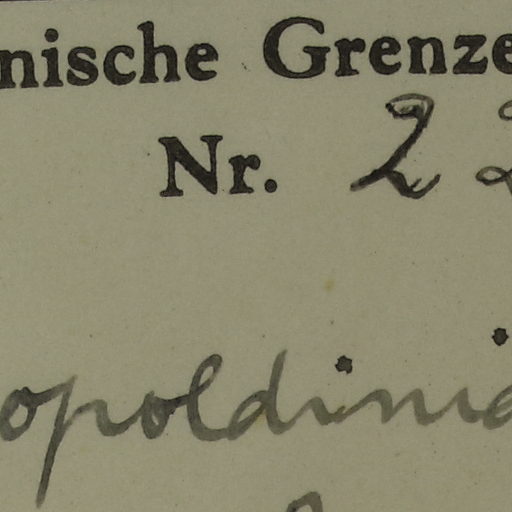 nische Grenze
Nr. 22
opoldinia